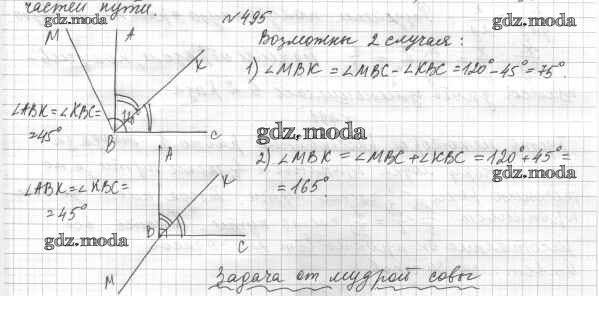 частей пути.
№495
gdz.moda
gdz.moda
M
A
K
Возможны 2 случая:
1) ∠MBK = ∠MBC - ∠KBC = 120° - 45° = 75°.
∠ABK = ∠KBC =
= 45°
B
C
gdz.moda
A
2) ∠MBK = ∠MBC + ∠KBC = 120° + 45° =
= 165°.
gdz.moda
∠ABK = ∠KBC =
= 45°
K
B
C
gdz.moda
M
Задача от мудрой совы